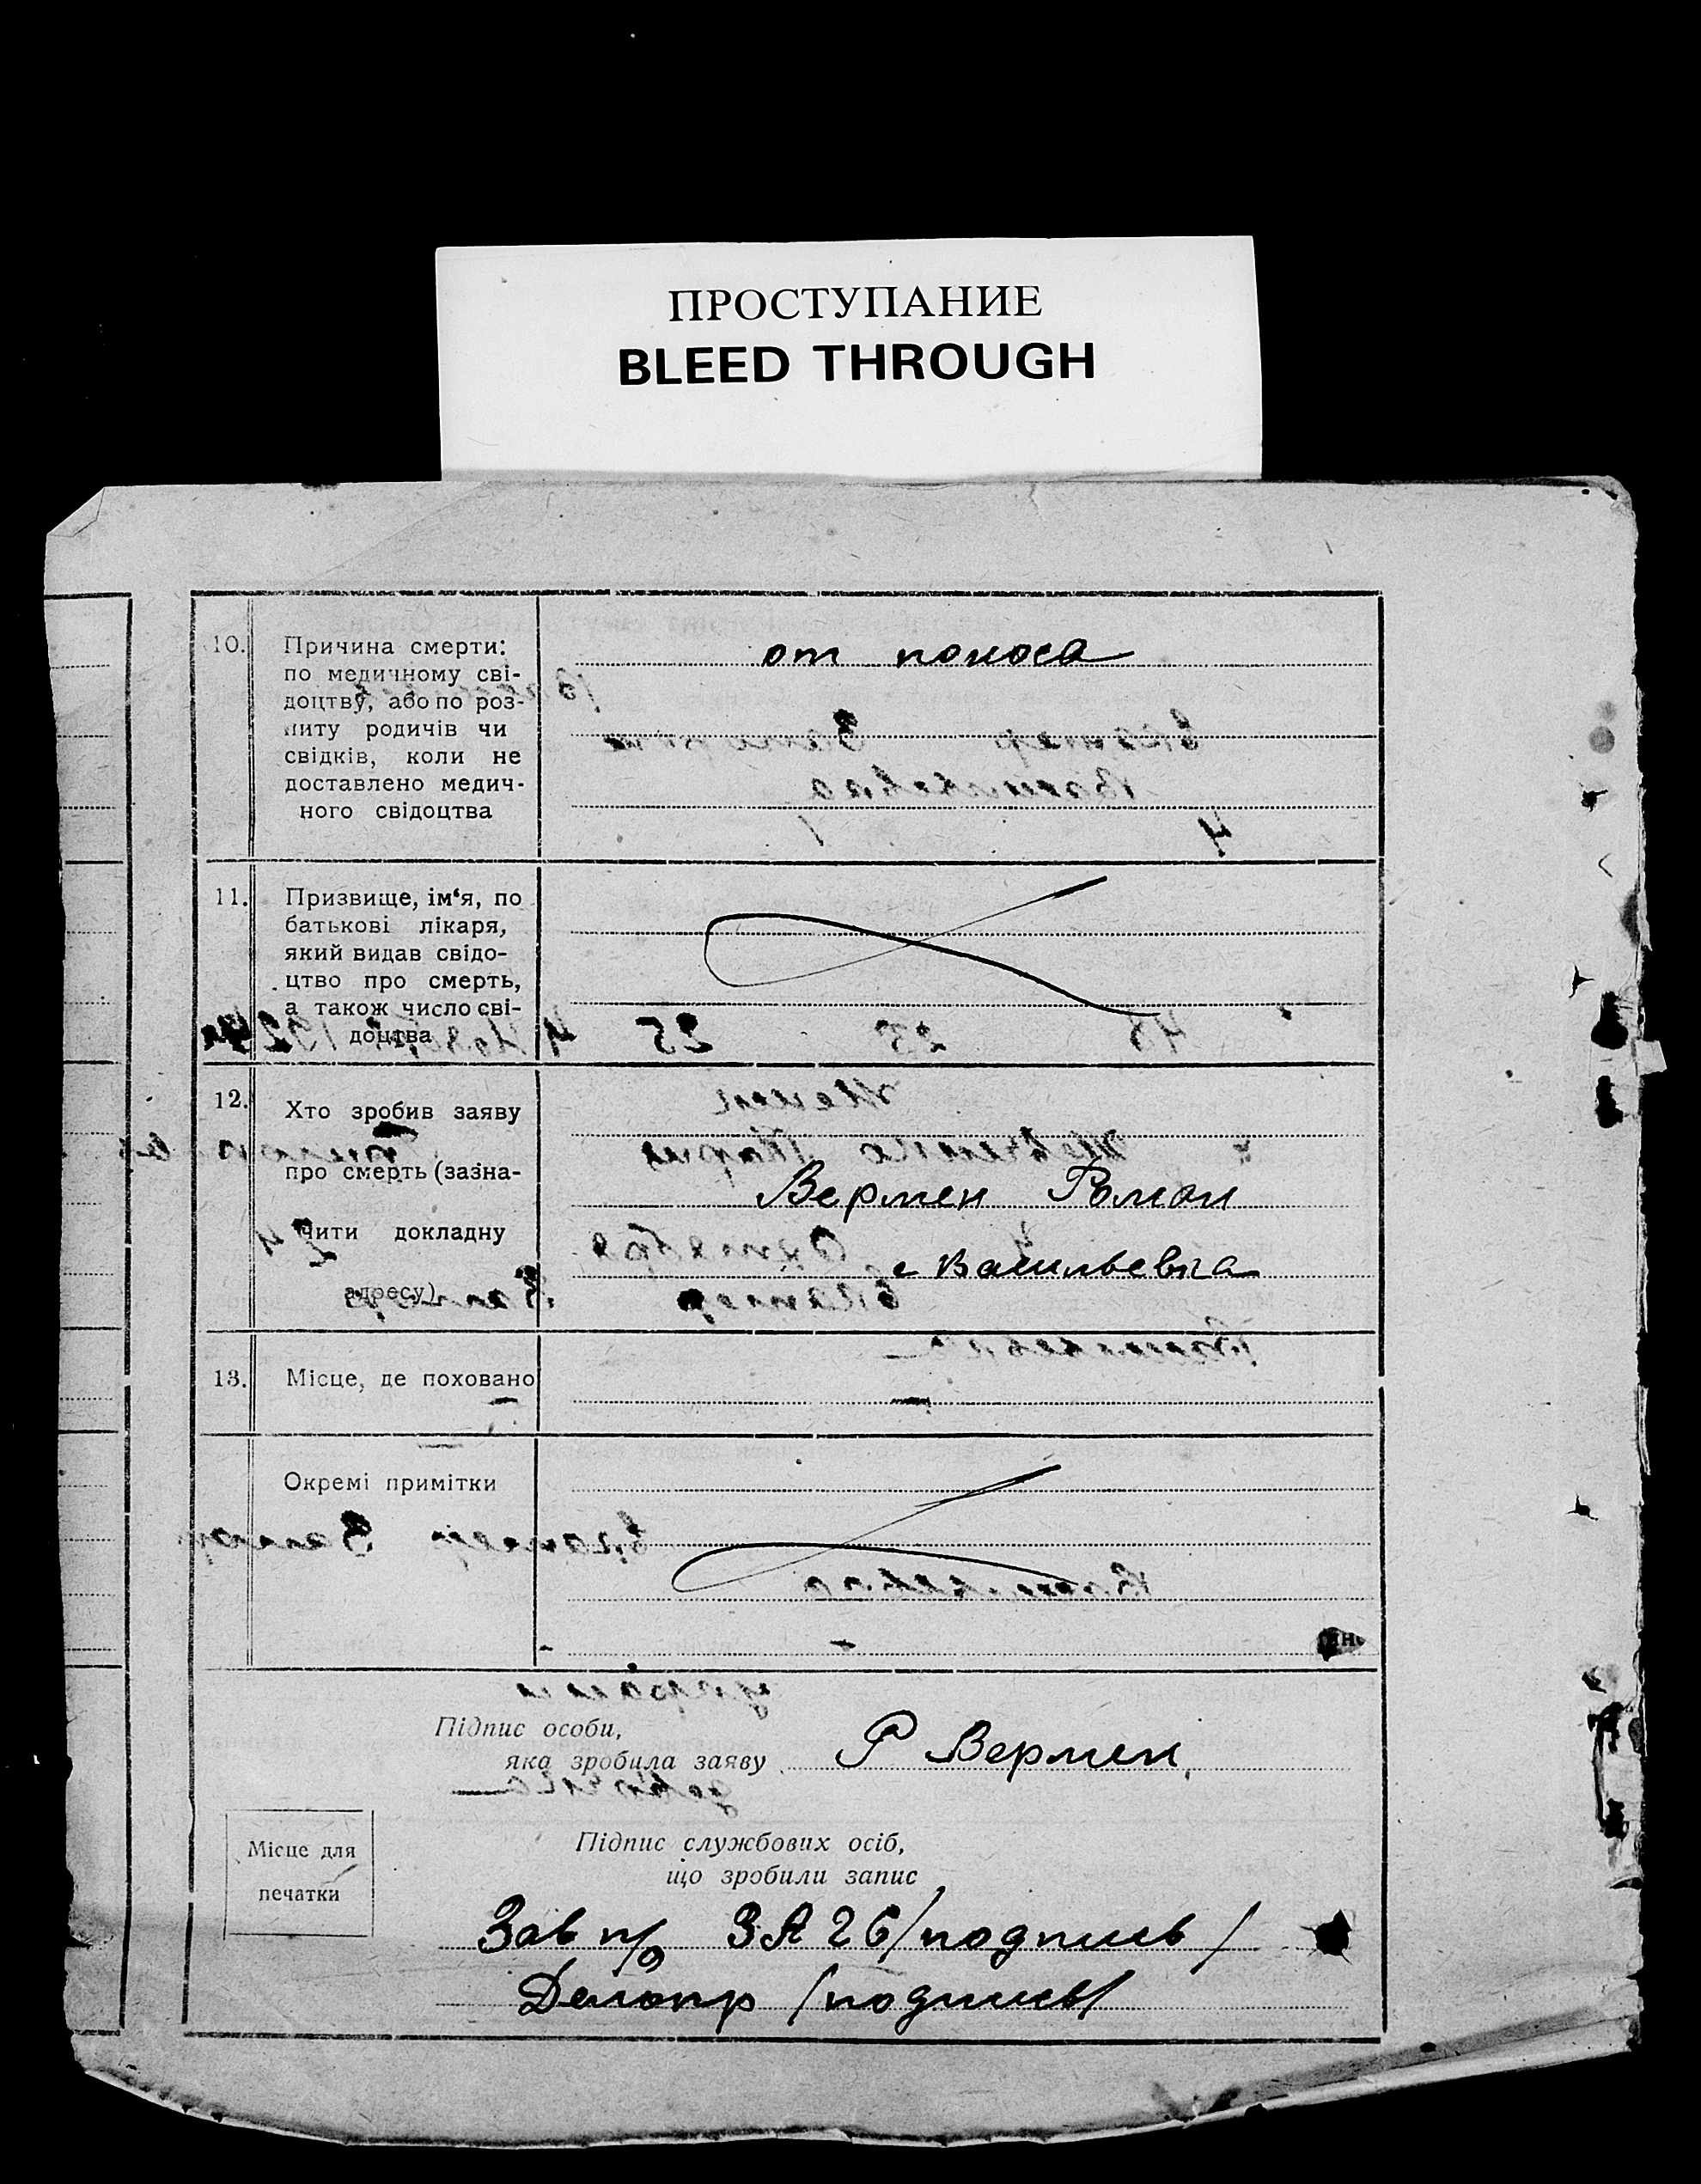 ПРОСТУПАНИЕ
BLEED THROUGH
10.
Причина смерти:
по медичному сві-
доцтву, або по роз-
питу родичів чи
свідків, коли не
доставлено медич-
ного свідоцтва
от поноса
11.
Призвище, ім‘я, по
батькові лікаря,
який видав свідо-
цтво про смерть,
а також число сві-
доцтва
12.
Хто зробив заяву
про смерть (зазна-
чити докладну
адресу)
Вермен Роман
с Васильевка
13.
Місце, де поховано
—
Окремі примітки
Підпис особи,
яка зробила заяву
Р Вермен
Місце для
печатки
Підпис службових осіб,
що зробили запис
Зав п/о /подпись/
Делопр /подпись/